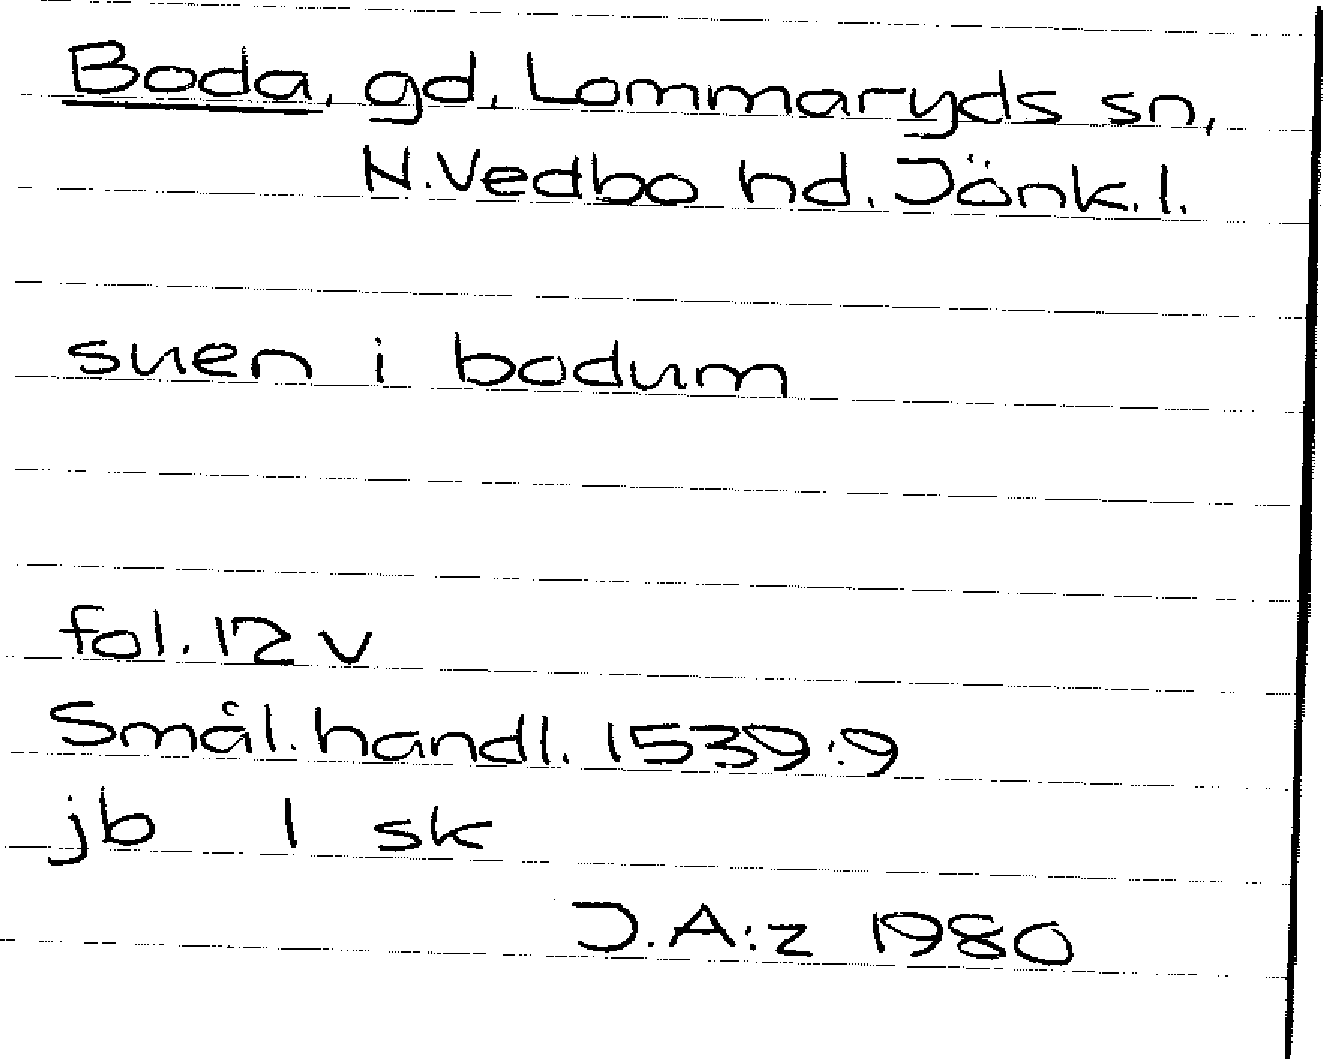 Boda, gd, Lommaryds sn,
N. Vedbo hd. Jönk. l.
suen i bodum
fol. 12 v
Smål. handl. 1539:9
jb 1 sk
J. A:z 1980